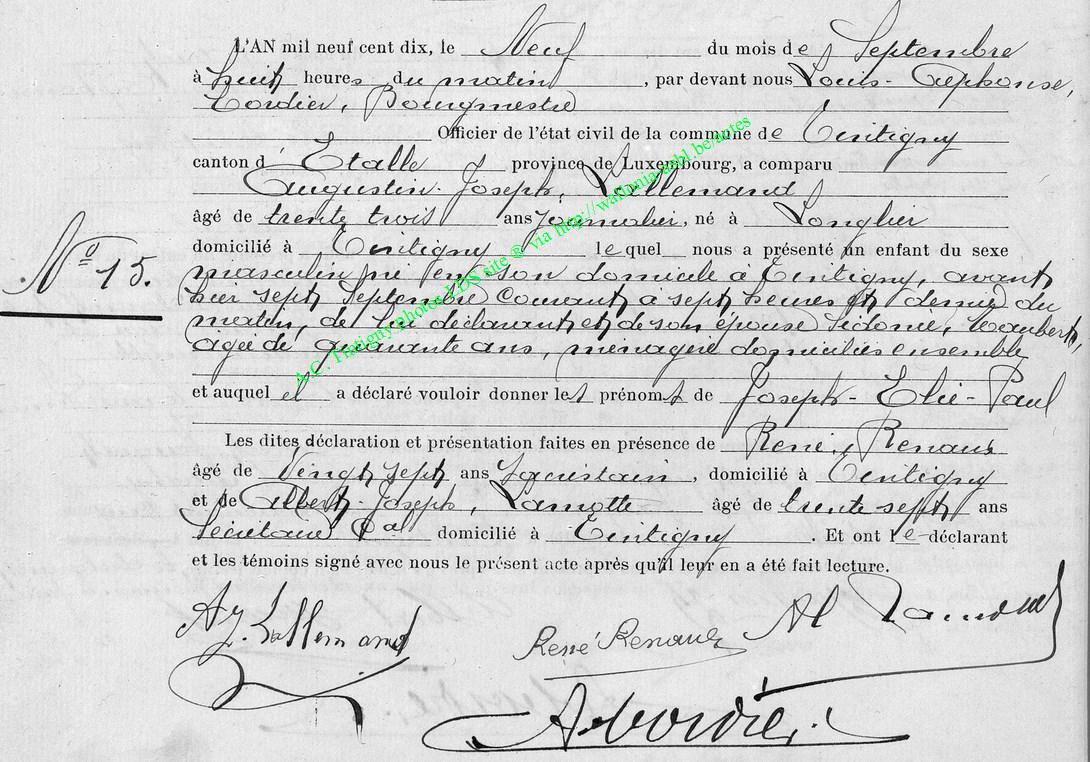 L'AN mil neuf cent dix, le Neuf du mois de Septembre
à huit heures du matin, par devant nous Louis-Alphonse,
Cordier, Bourgmestre
Officier de l'état civil de la commune de Tintigny
canton d'Etalle province de Luxembourg, a comparu
Augustin-Joseph, Lallemand
âgé de trente trois ans Journalier, né à Longlier
domicilié à Tintigny lequel nous a présenté un enfant du sexe
No 15.
masculin né en son domicile à Tintigny, avant
hier sept Septembre courant à sept heures et demie du
matin, de lui déclarant et de son épouse Sidonie,
agée de quarante ans, ménagère domiciliés ensemble
et auquel il a déclaré vouloir donner les prénoms de Joseph-Elie-Paul
Les dites déclaration et présentation faites en présence de René, Renaux
âgé de Vingt sept ans Sacristain, domicilié à Tintigny
et de Albert-Joseph, Lamotte âgé de trente sept ans
Secrétaire Cal domicilié à Tintigny. Et ont le déclarant
et les témoins signé avec nous le présent acte après qu'il leur en a été fait lecture.
A.J. Lallemand
René Renaux
A. Cordier
A.C. Tintigny photos LDS site ® via http://wallonia-asbl.be/antes